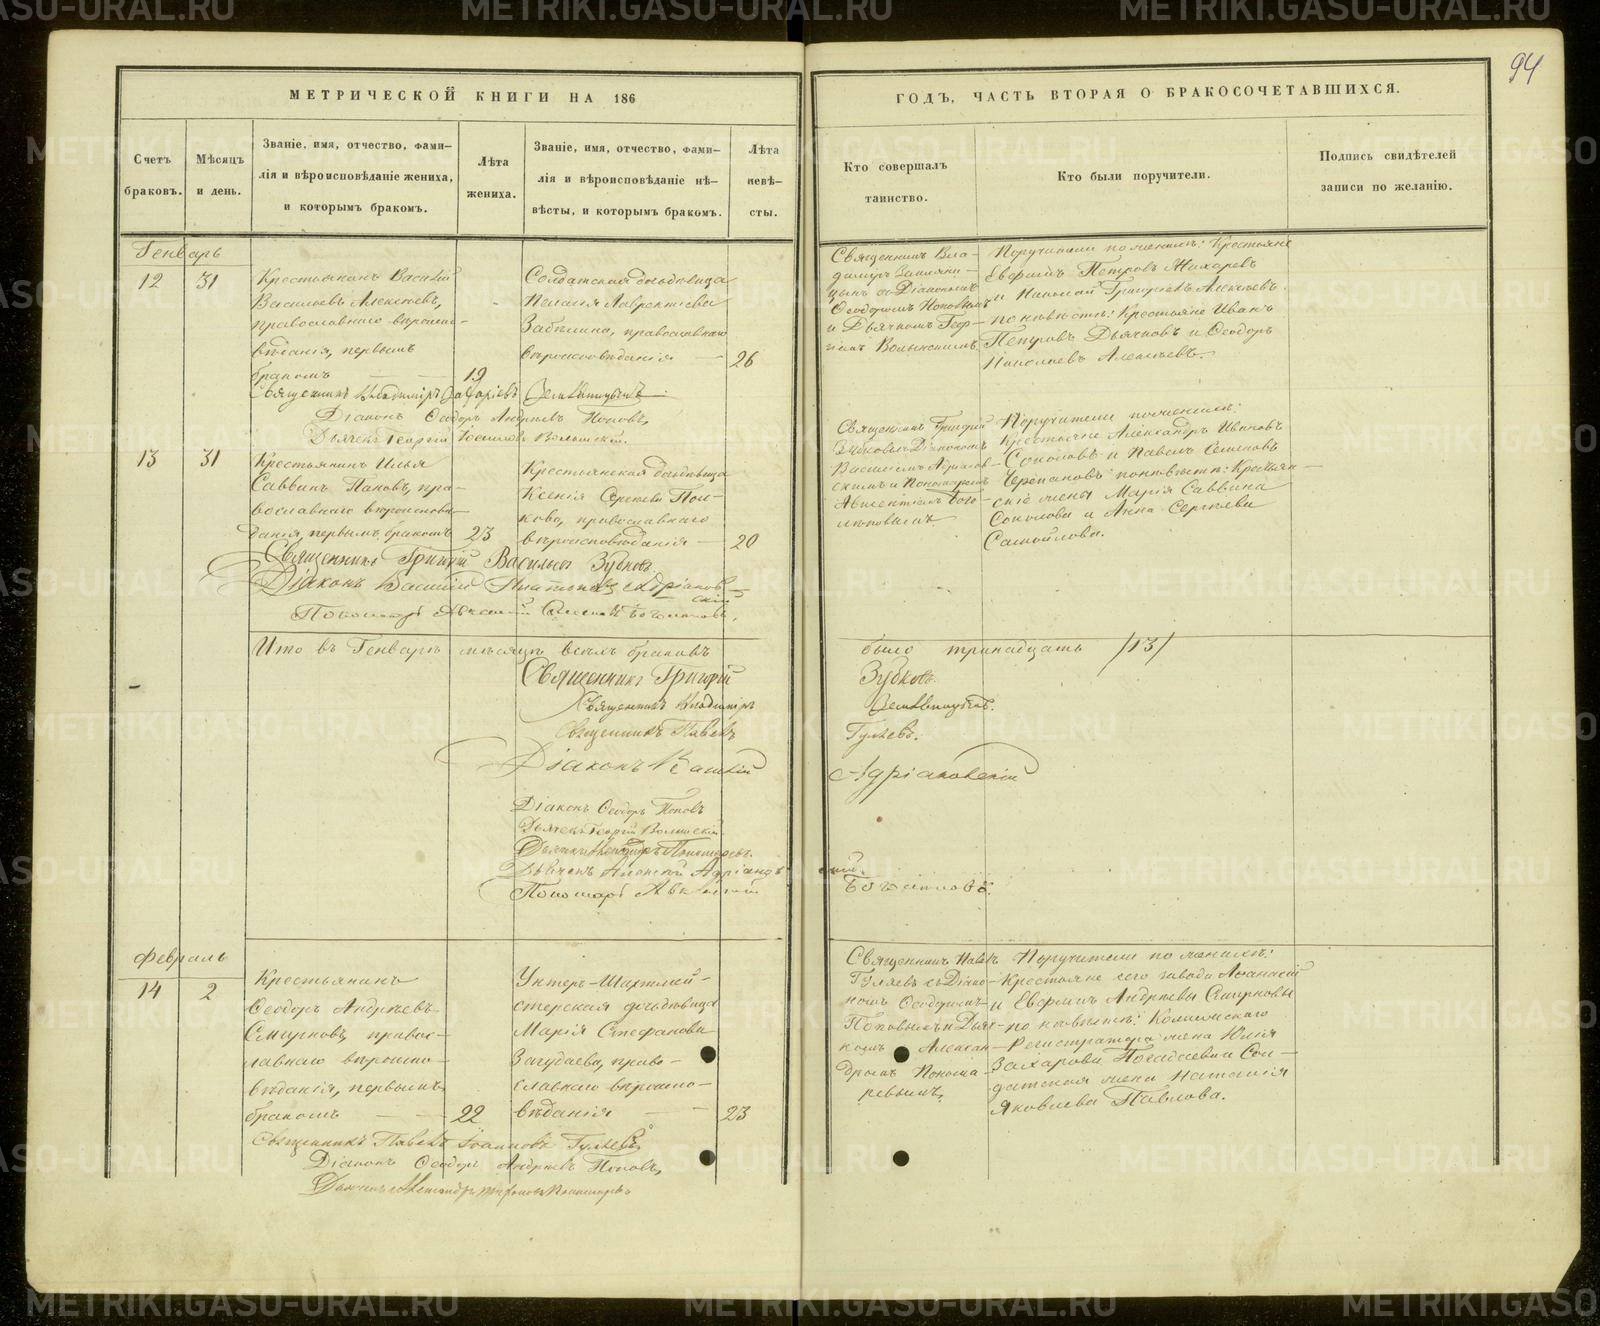 94
МЕТРИЧЕСКОЙ КНИГИ НА 186
ГОДЪ, ЧАСТЬ ВТОРАЯ О БРАКОСОЧЕТАВШИХСЯ.
Счетъ
браковъ.
Мѣсяцъ
и день.
Званіе, имя, отчество, фами-
лія и вѣроисповѣданіе жениха,
и которымъ бракомъ.
Лѣта
жениха.
Званіе, имя, отчество, фами-
лія и вѣроисповѣданіе не-
вѣсты, и которымъ бракомъ.
Лѣта
невѣ-
сты.
Кто совершалъ
таинство.
Кто были поручители.
Подпись свидѣтелей
записи по желанію.
Генварь
12
31
Крестьянинъ Василій
Васильевъ Алексѣевъ,
православнаго вѣроиспо-
вѣданія, первымъ
бракомъ
19
Солдатская дочь дѣвица
Пелагія Лаврентіева
Забѣлина, православнаго
вѣроисповѣданія
26
Священникъ Вла-
димиръ
съ Діакономъ
Ѳеодоромъ Поповымъ
и Дьячкомъ Геор-
гіемъ Волынскимъ
Поручители по женихѣ: Крестьяне
Евфимъ Петровъ Макаревъ
и Николай Григорьевъ Алексѣевъ.
по невѣстѣ: Крестьяне Иванъ
Петровъ Дьячковъ и Ѳеодоръ
Николаевъ Алексѣевъ.
Священникъ Владиміръ
Діаконъ Ѳеодоръ Андреевъ Поповъ,
Дьячекъ Георгій Волынскій.
13
31
Крестьянинъ Илья
Саввинъ Пановъ, пра-
вославнаго вѣроисповѣ-
данія, первымъ бракомъ
23
Крестьянская дочь дѣвица
Ксенія Сергеева Пол-
кова, православнаго
вѣроисповѣданія
20
Священникъ Григорій
Зубковъ съ Діакономъ
Василіемъ Адріанов-
скимъ и Пономаремъ
Авксентіемъ Бого-
лѣповымъ
Поручители по женихѣ:
Крестьяне Александръ Ивановъ
Соколовъ и Павелъ Семеновъ
Черепановъ по невѣстѣ: Крестьян-
скіе жены Марія Саввина
Соколова и Анна Сергѣева
Самойлова.
Священникъ Григорій Васильевъ Зубковъ.
Діаконъ Василій Платоновъ Адріанов-
скій
Пономарь Боголѣповъ.
Итого въ Генварѣ мѣсяцѣ всѣхъ браковъ
было тринадцать /13/
Священникъ Григорій
Зубковъ.
Священникъ Владиміръ
Священникъ Павелъ
Гуляевъ.
Діаконъ Василій
Адріановскій
Діаконъ Ѳеодоръ Поповъ
Дьячекъ Георгій Волынскій.
Дьячекъ Александръ Пономаревъ.
Дьячекъ Алексѣй Адріанов-
скій.
Пономарь
Боголѣповъ.
Февраль
14
2
Крестьянинъ
Ѳеодоръ Андреевъ
Смирновъ, правос-
лавнаго вѣроиспо-
вѣданія, первымъ
бракомъ
22
Унтеръ-Шахтмей-
стерская дочь дѣвица
Марія Стефанова
Загудаева, право-
славнаго вѣроиспо-
вѣданія
23
Священникъ Павелъ
Гуляевъ съ Діако-
номъ Ѳеодоромъ
Поповымъ и Дьяч-
комъ Алексан-
дромъ Понома-
ревымъ,
Поручители по женихѣ:
Крестьяне сего завода Аѳанасій
и Евфимъ Андреевы Смирновы
по невѣстѣ: Коллежскаго
Регистратора жена Юлія
Захарова и Сол-
датская жена Наталія
Яковлева Павлова.
Священникъ Павелъ Іоанновъ Гуляевъ,
Діаконъ Ѳеодоръ Андреевъ Поповъ,
Дьячекъ Александръ Пономаревъ
METRIKI.GASO-URAL.RU